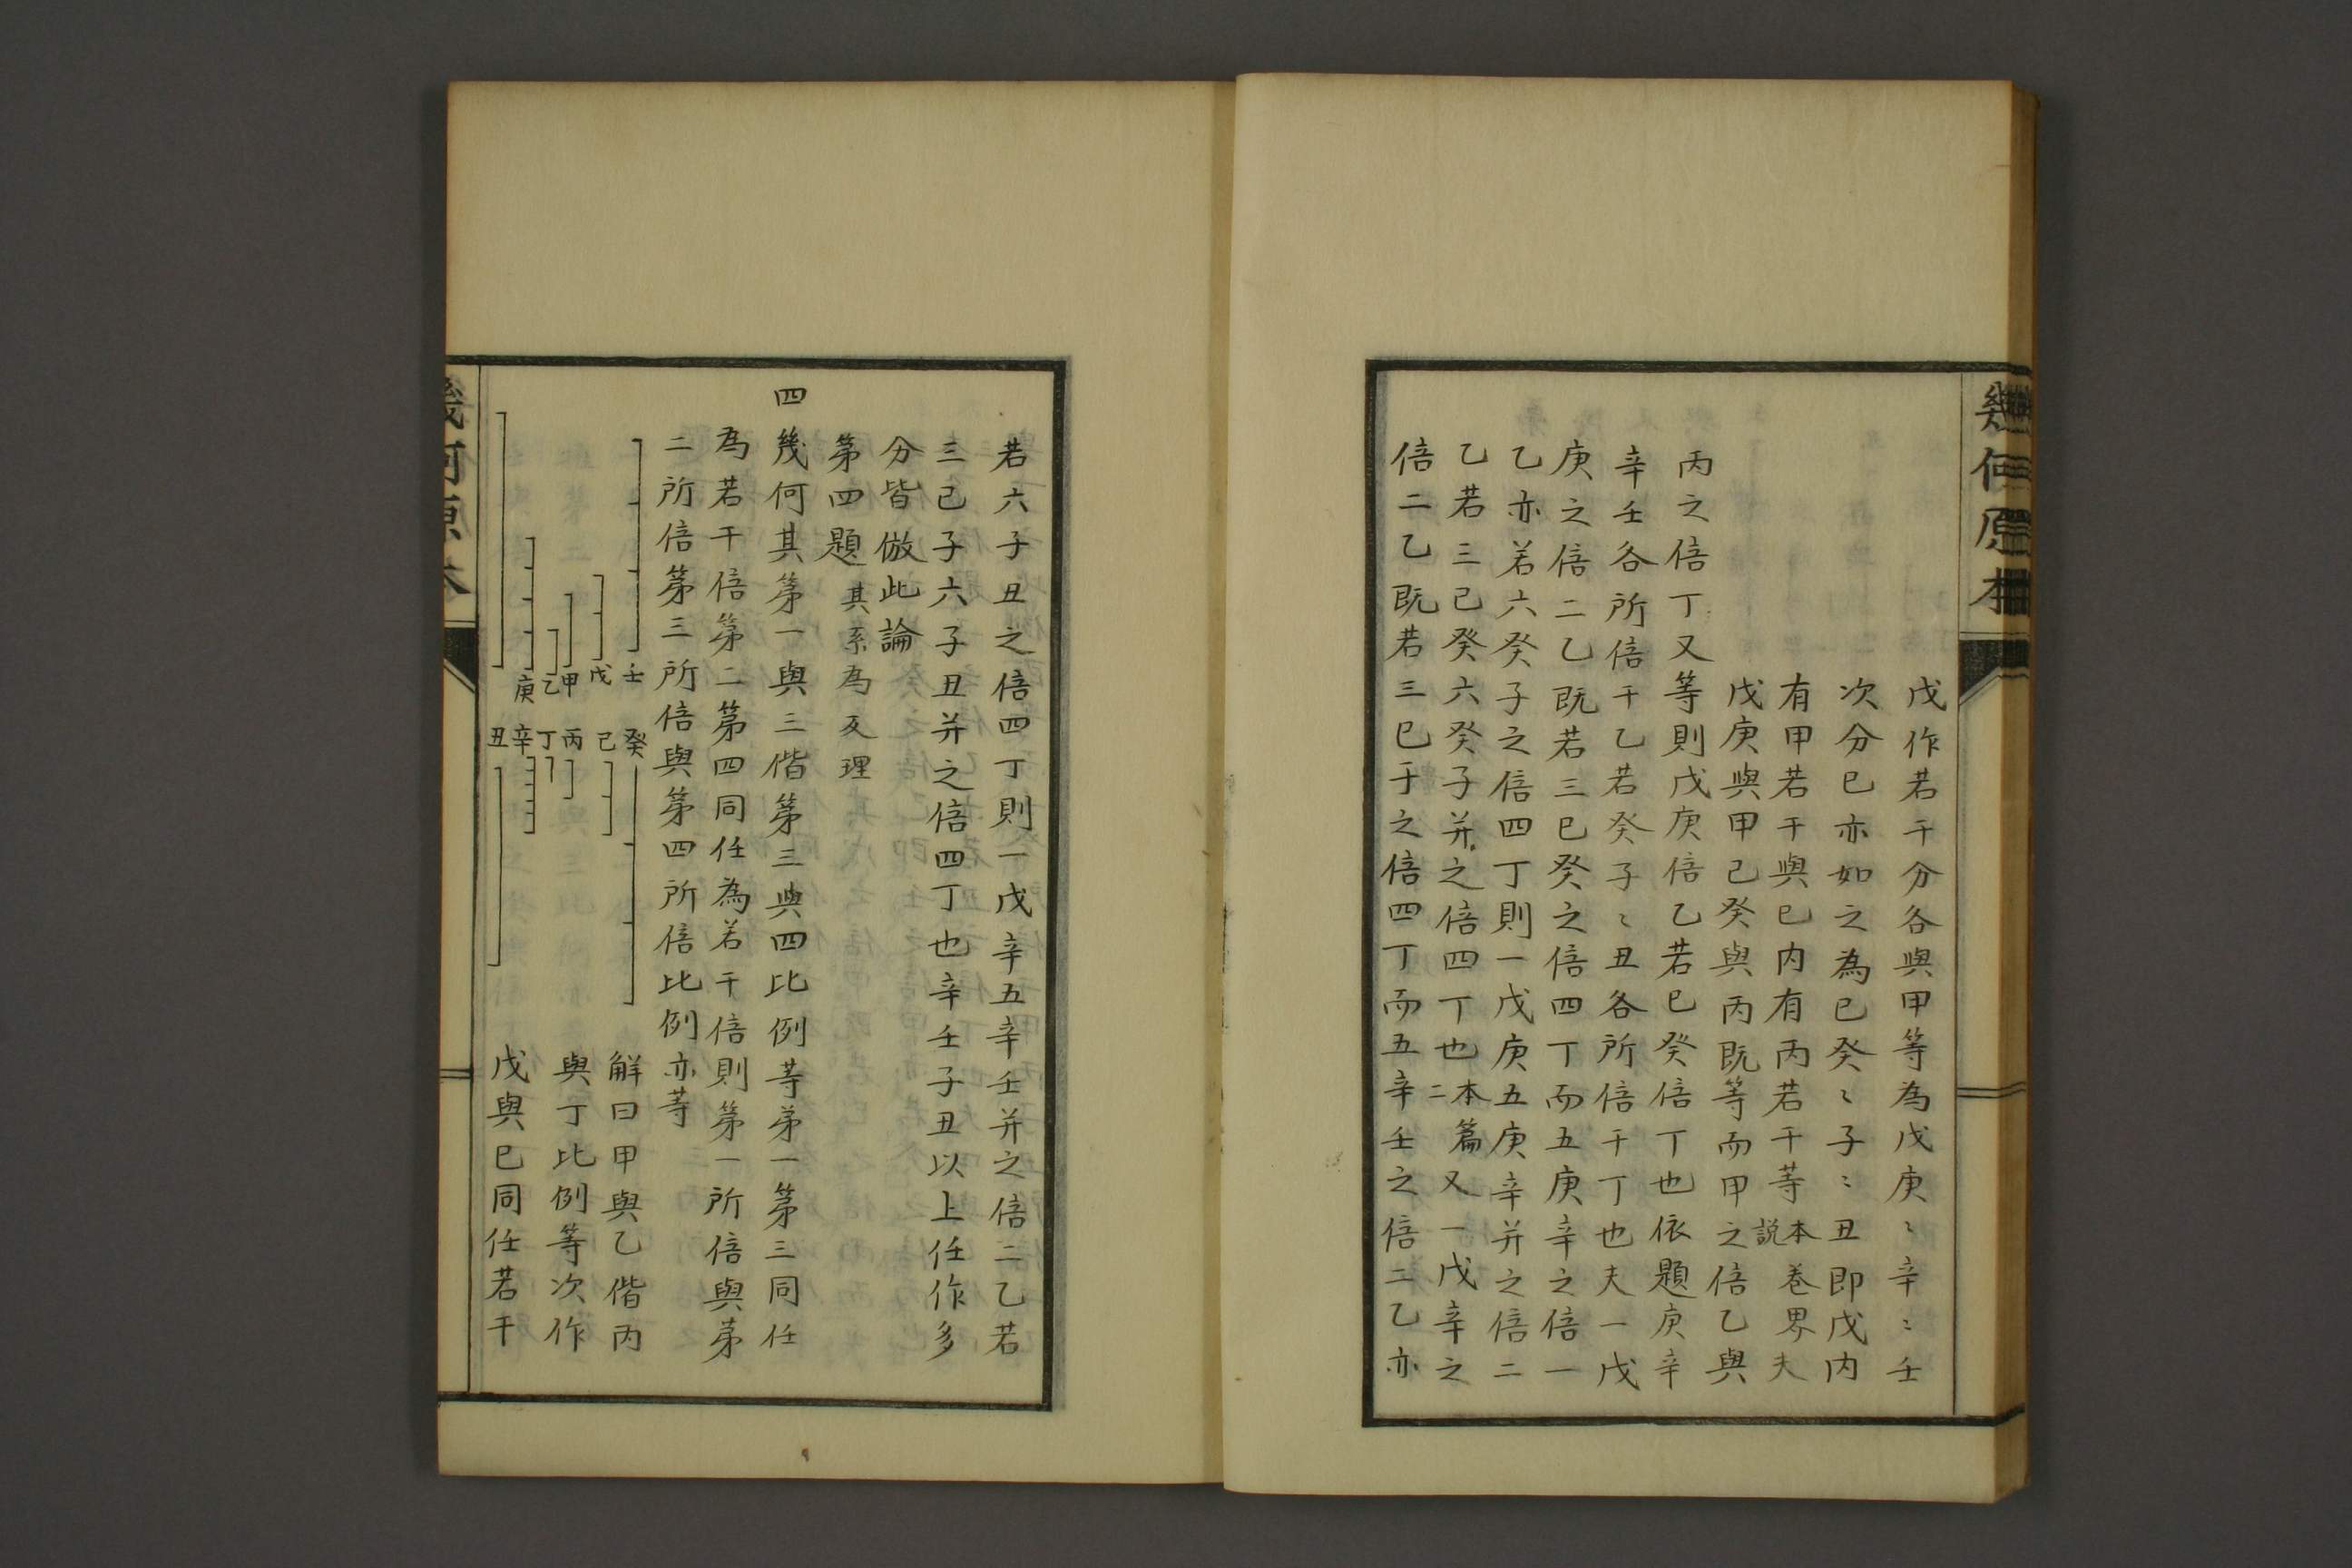 幾何原本
戊作若干分各與甲等為戊庚〻辛〻壬
次分巳亦如之為巳癸〻子〻丑即戊内
有甲若干與巳内有丙若干等本卷界說夫
戊庚與甲己癸與丙既等而甲之倍乙與
丙之倍丁又等則戊庚倍乙若巳癸倍丁也依題庚辛
辛壬各所倍于乙若癸子〻丑各所倍于丁也夫一戊
庚之倍二乙既若三巳癸之倍四丁而五庚辛之倍一
乙亦若六癸子之倍四丁則一戊庚五庚辛并之倍二
乙若三己癸六癸子并之倍四丁也本篇二又一戊辛之
倍二乙既若三巳子之倍四丁而五辛壬之倍二乙亦
若六子丑之倍四丁則一戊辛五辛壬并之倍二乙若
三己子六子丑并之倍四丁也辛壬子丑以上任作多
分皆倣此論
第四題其系為反理
四幾何其第一與二偕第三與四比例等第一第三同任
為若干倍第二第四同任為若干倍則第一所倍與第
二所倍第三所倍與第四所倍比例亦等
壬
戊
甲
乙
庚
癸
己
丙
丁
辛
丑
解曰甲與乙偕丙
與丁比例等次作
戊與巳同任若干
幾何原本